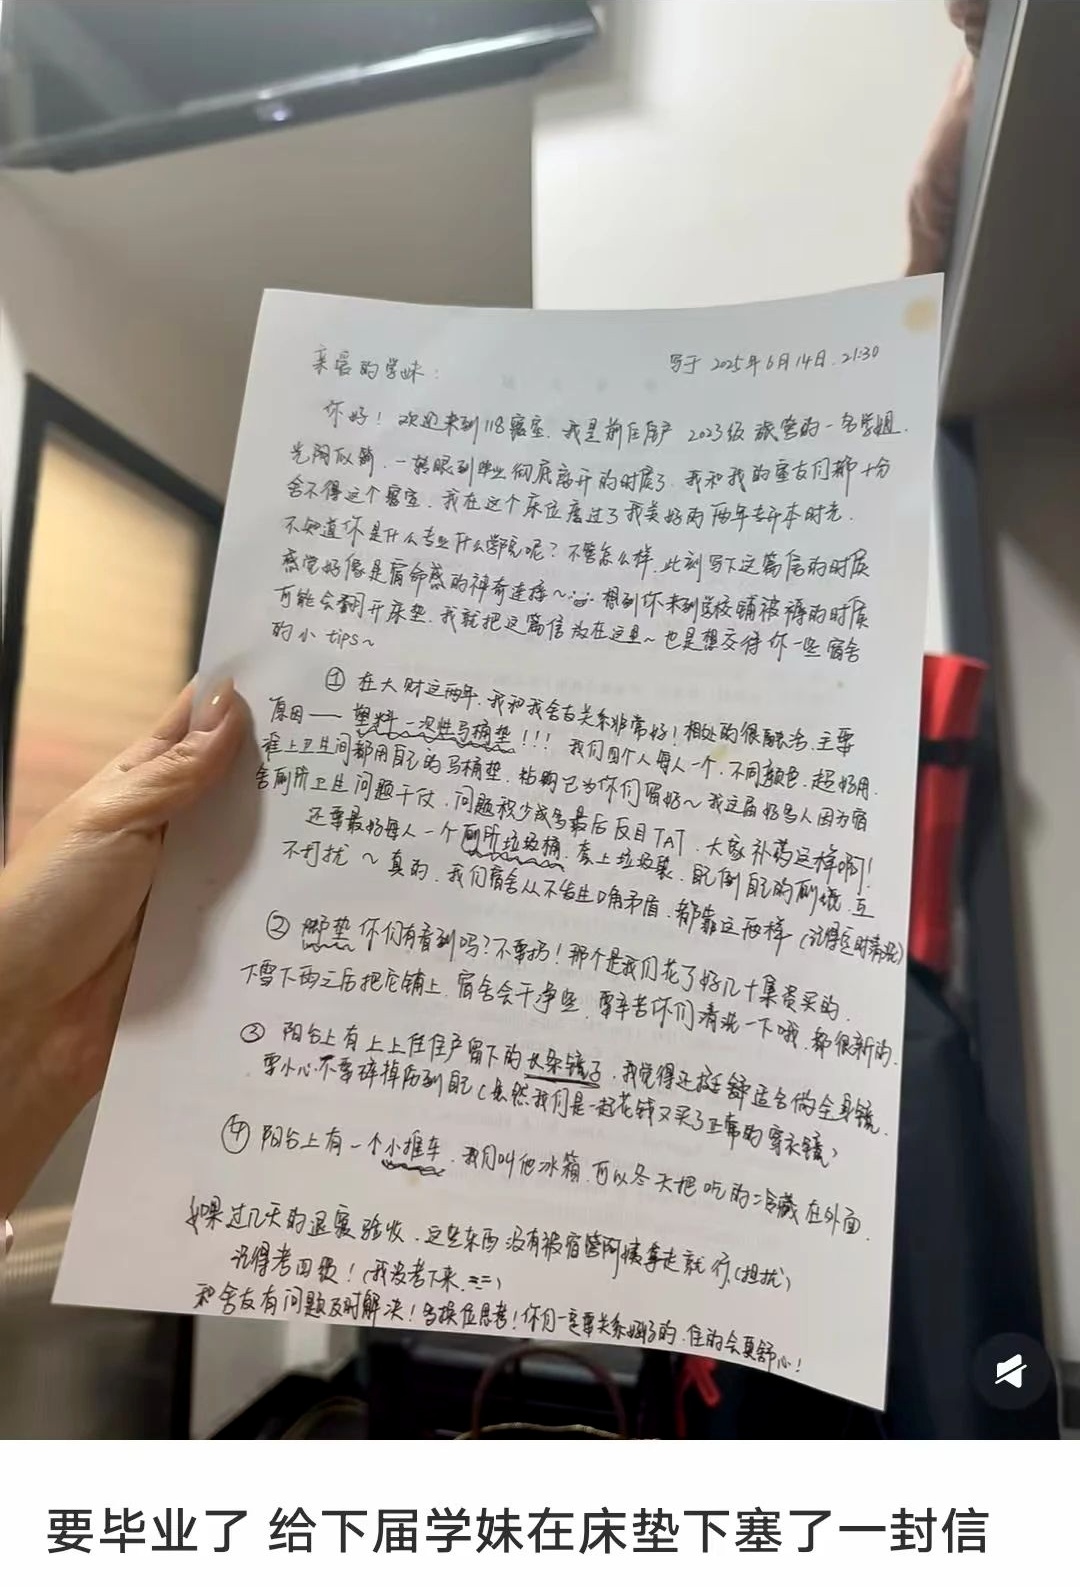 亲爱的学妹：
写于 2025年6月14日. 21:30
你好！欢迎来到118寝室. 我是前住户 2023级 旅管的一名学姐.
光阴似箭. 一转眼到毕业彻底离开的时候了. 我和我的室友们都十分
舍不得这个寝室. 我在这个床位度过了我美好的两年专升本时光.
不知道你是什么专业什么学院呢？不管怎么样. 此刻写下这篇信的时候
感觉好像是宿命感的神奇连接～ 想到你来到学校铺被褥的时候
可能会翻开床垫. 我就把这篇信放在这里～也是想交待你一些宿舍
的小 tips～
① 在大财这两年. 我和我舍友关系非常好！相处的很融洽. 主要
原因——塑料一次性马桶垫！！！ 我们四个人每人一个. 不同颜色. 超好用.
谁上卫生间都用自己的马桶垫. 粘钩已为你们留好～我这届好多人因为宿
舍厕所卫生问题干仗. 问题积少成多最后反目TAT. 大家 这样啊！
还要最好每人一个厕所垃圾桶. 套上垃圾袋. 自己倒自己的厕纸. 互
不打扰～真的. 我们宿舍从不发生口角矛盾. 都靠这两样（记得定时清洗）
② 脚垫你们有看到吗？不要扔！那个是我们花了好几十集资买的.
下雪下雨之后把它铺上. 宿舍会干净些. 要辛苦你们清洗一下哦. 都很新的.
③ 阳台上有上上任住户留下的长条镜子. 我觉得还挺 适合做全身镜.
要小心. 不要碎掉伤到自己（虽然我们是一起花钱又买了正常的穿衣镜）
④ 阳台上有一个小推车. 我们叫他冰箱. 可以冬天把吃的冷藏在外面.
如果过几天的退寝验收. 这些东西没有被宿管阿姨拿走就行（担忧）
记得考四级！（我没考下来. ==）
和舍友有问题及时解决！多换位思考！你们一定要关系好好的. 住的会更舒心！
要毕业了 给下届学妹在床垫下塞了一封信